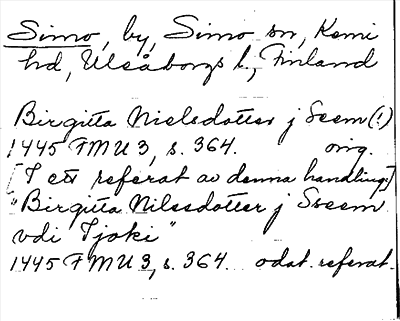 Simo, by, Simo sn, Kemi
hd, Uleåborgs l., Finland
Birgitta Nielsdotter j Seem (!)
1445 FMU 3, s. 364. orig.
[I ett referat av denna handling:]
"Birgitta Nilssdotter j Sveem
vdi Tjoki"
1445 FMU 3, s. 364. odat. referat.